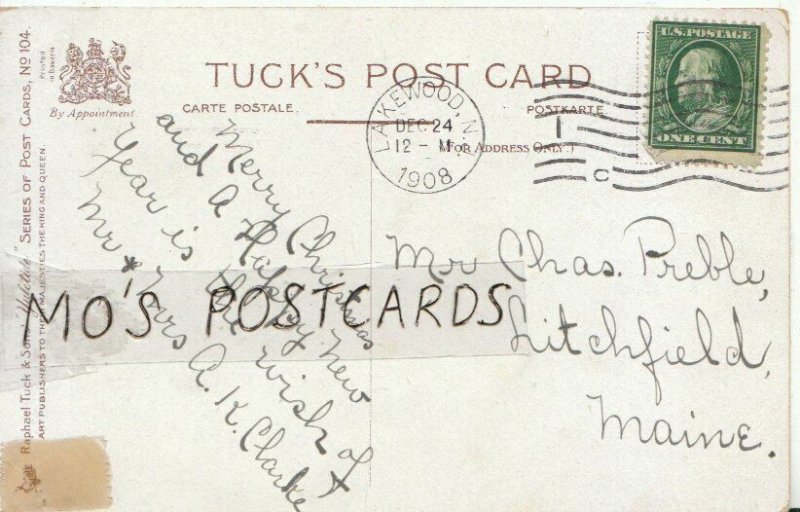 TUCK'S POST CARD
CARTE POSTALE.
POSTKARTE
(FOR ADDRESS ONLY.)
By Appointment.
Printed
in Bavaria
Raphael Tuck & Sons' "Yuletide" SERIES OF POST CARDS, No 104.
ART PUBLISHERS TO THEIR MAJESTIES THE KING AND QUEEN.
LAKEWOOD, N.J.
DEC 24
12 - M
1908
U.S. POSTAGE
ONE CENT
Merry Christmas
and A Happy New
Year is the wish of
Mr & Mrs A. K. Clarke
Mr Chas. Preble,
Litchfield,
Maine.
MO'S POSTCARDS